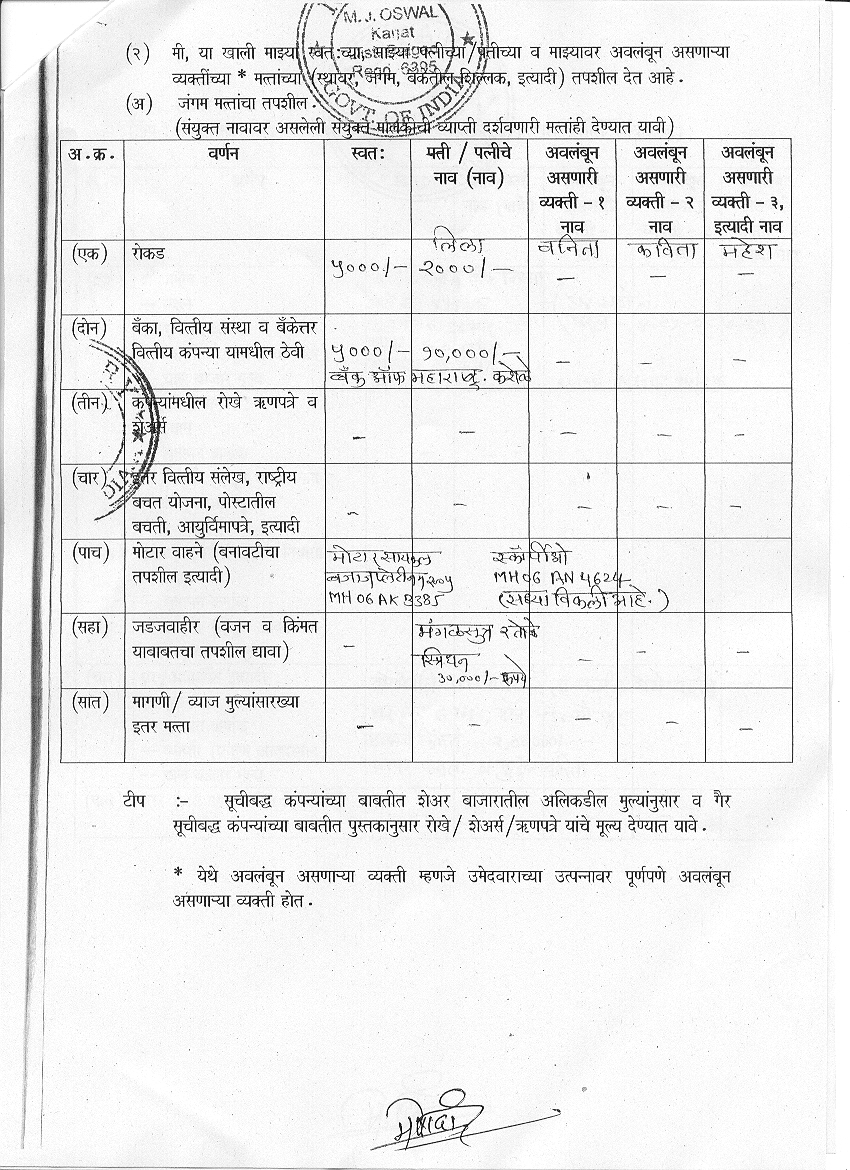 M. J. OSWAL
Karjat
Regn. 6395
GOVT. OF INDIA
(२) मी, या खाली माझ्या स्वत:च्या, माझ्या पत्नीच्या/पतीच्या व माझ्यावर अवलंबून असणाऱ्या
व्यक्तींच्या * मत्तांच्या (स्थावर, जंगम, बँकेतील शिल्लक, इत्यादी) तपशील देत आहे.
(अ) जंगम मत्तांचा तपशील :
(संयुक्त नावावर असलेली संयुक्त मालकीची व्याप्ती दर्शवणारी मत्तांही देण्यात यावी)
अ.क्र. वर्णन स्वत: पती / पत्नीचे नाव (नाव) अवलंबून असणारी व्यक्ती - १ नाव अवलंबून असणारी व्यक्ती - २ नाव अवलंबून असणारी व्यक्ती - ३, इत्यादी नाव
लिला वनिता कविता महेश
(एक) रोकड ५०००/- २०००/- – – –
(दोन) बँका, वित्तीय संस्था व बँकेत्तर
वित्तीय कंपन्या यामधील ठेवी ५०००/- १०,०००/- – – –
बँक ऑफ महाराष्ट्र.
(तीन) कंपन्यांमधील रोखे ऋणपत्रे व
शेअर्स – – – – –
(चार) इतर वित्तीय संलेख, राष्ट्रीय
बचत योजना, पोस्टातील
बचती, आयुर्विमापत्रे, इत्यादी – – – – –
(पाच) मोटार वाहने (बनावटीचा मोटार सायकल स्कॉर्पीओ
तपशील इत्यादी) MH 06 AN 4624
MH 06 AK 8385 (सध्या विकली आहे.)
(सहा) जडजवाहीर (वजन व किंमत मंगळसुत्र २ तोळे
याबाबतचा तपशील द्यावा) – स्त्रिधन – – –
30,000/- रुपये
(सात) मागणी/ व्याज मुल्यांसारख्या
इतर मत्ता – – – – –
टीप :- सूचीबद्ध कंपन्यांच्या बाबतीत शेअर बाजारातील अलिकडील मुल्यांनुसार व गैर
सूचीबद्ध कंपन्यांच्या बाबतीत पुस्तकानुसार रोखे/ शेअर्स/ऋणपत्रे यांचे मूल्य देण्यात यावे.
* येथे अवलंबून असणाऱ्या व्यक्ती म्हणजे उमेदवाराच्या उत्पन्नावर पूर्णपणे अवलंबून
असणाऱ्या व्यक्ती होत.